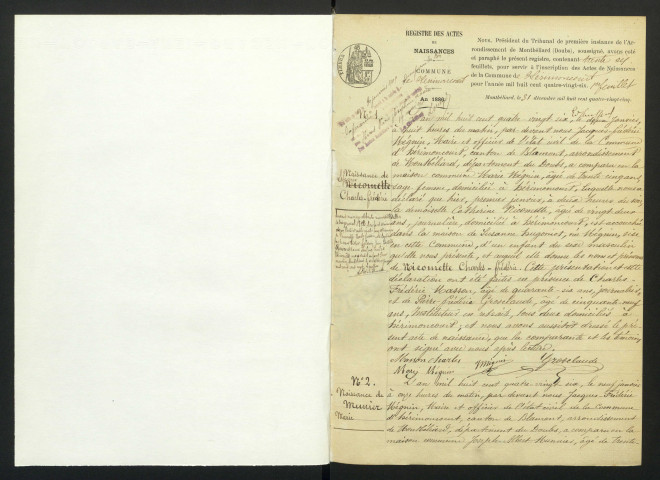 REGISTRE DES ACTES
DE
NAISSANCES
COMMUNE
de Hérimoncourt
An 1886
Nous, Président du Tribunal de première instance de l'Ar-
rondissement de Montbéliard (Doubs), soussigné, avons coté
et paraphé le présent registre, contenant
feuillets, pour servir à l'inscription des Actes de Naissances
de la Commune de Hérimoncourt
pour l'année mil huit cent quatre-vingt-six. 1er feuillet
Montbéliard, le 31 décembre mil huit cent quatre-vingt-cinq.
N° 1.
Naissance de
Nicomette
Charles-Frédéric
L'an mil huit cent quatre vingt six, le deux Janvier,
à huit heures du matin, par devant nous Jacques-Frédéric
Méquin, Maire et officier de l'état civil de la Commune
d'Hérimoncourt, canton de Blamont, arrondissement
de Montbéliard, département du Doubs, a comparu en la
maison commune Marie Méquin, âgée de trente cinq ans,
sage femme, domiciliée à Hérimoncourt, laquelle nous a
déclaré que hier, premier janvier, à deux heures du soir,
la demoiselle Catherine Nicomette, âgée de vingt deux
ans, journalière, domiciliée à Hérimoncourt, est accouchée
dans la maison de Suzanne
en cette Commune, d'un enfant du sexe masculin
qu'elle nous présente, et auquel elle donne les nom et prénoms
de Nicomette Charles-Frédéric. Cette présentation et cette
déclaration ont été faites en présence de Charles-
Frédéric Masson, âgé de quarante-six ans,
et de Pierre-Frédéric Grosclaude, âgé de cinquante-neuf
ans, Instituteur en retraite, tous deux domiciliés à
Hérimoncourt; et nous avons aussitôt dressé le pré-
sent acte de naissance, que la comparante et les témoins
ont signé avec nous après lecture.
Masson Charles Méquin Grosclaude
Mary Méquin
N° 2.
Naissance de
Meunier
L'an mil huit cent quatre vingt six, le neuf janvier
à onze heures du matin, par devant nous Jacques-Frédéric
Méquin, Maire et officier de l'état civil de la Commune
d'Hérimoncourt, canton de Blamont, arrondissement
de Montbéliard, département du Doubs, a comparu en la
maison commune Joseph Albert Meunier, âgé de trente